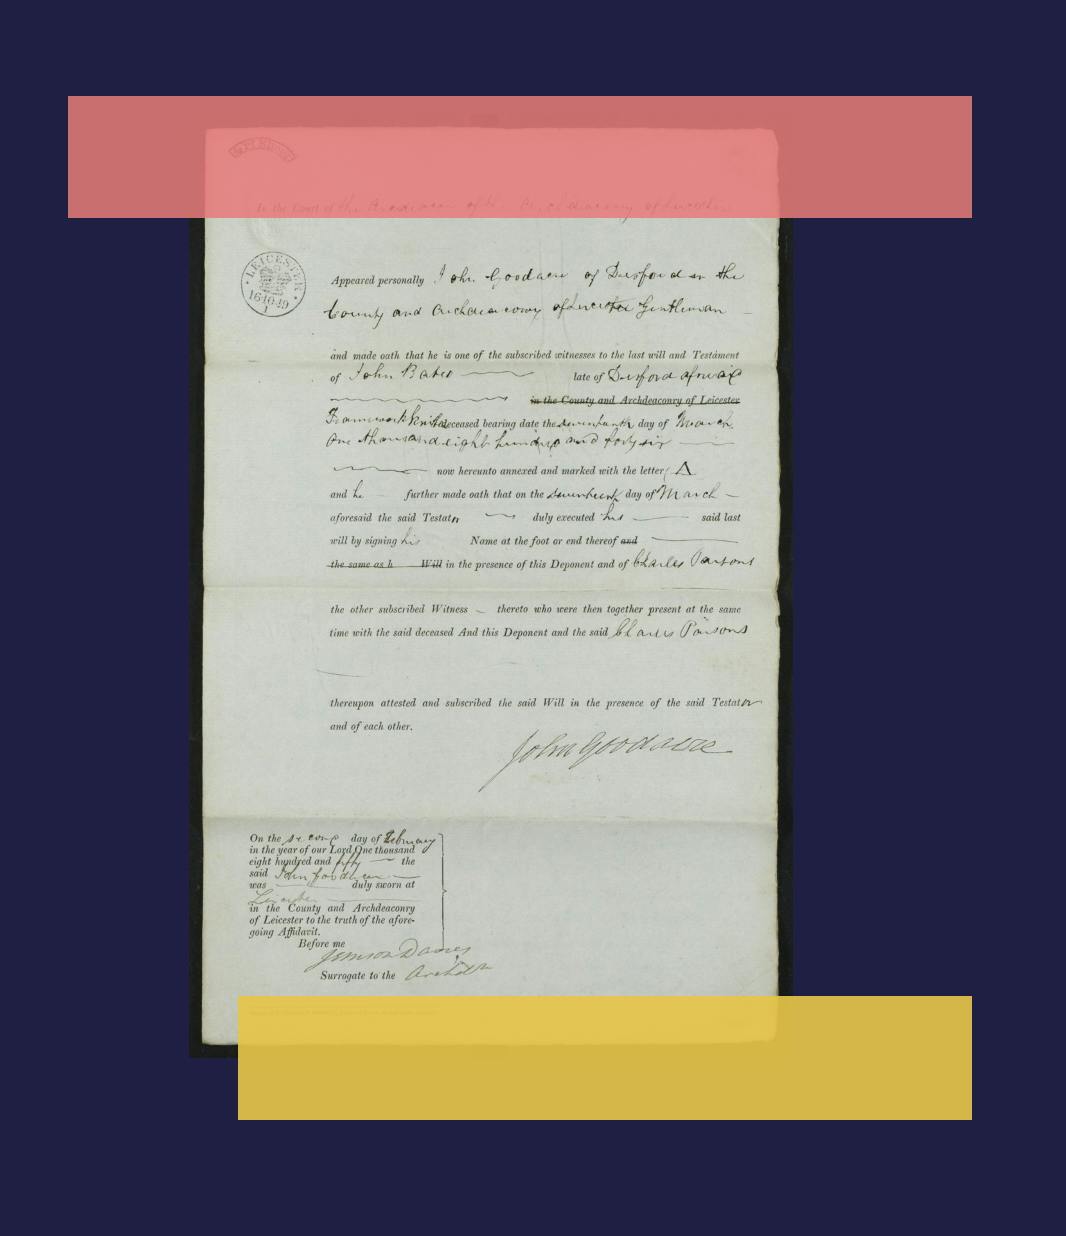 In the Court of the Archdeacon of the Archdeaconry of Leicester
LEICESTER
16·10·49
1
Appeared personally John Goodacre of Desford in the
County and Archdeaconry of Leicester Gentleman
and made oath that he is one of the subscribed witnesses to the last will and Testament
of John Bates late of Desford aforesaid
in the County and Archdeaconry of Leicester
Framework knitter deceased bearing date the seventeenth day of March
One thousand eight hundred and forty six
now hereunto annexed and marked with the letter A
and he further made oath that on the seventeenth day of March
aforesaid the said Testator duly executed his said last
will by signing his Name at the foot or end thereof and
the same as h Will in the presence of this Deponent and of Charles Parsons
the other subscribed Witness thereto who were then together present at the same
time with the said deceased And this Deponent and the said Charles Parsons
thereupon attested and subscribed the said Will in the presence of the said Testator
and of each other.
John Goodacre
On the second day of February
in the year of our Lord One thousand
eight hundred and fifty the
said John Goodacre
was duly sworn at
Leicester
in the County and Archdeaconry
of Leicester to the truth of the afore-
going Affidavit.
Before me
Davies
Surrogate to the